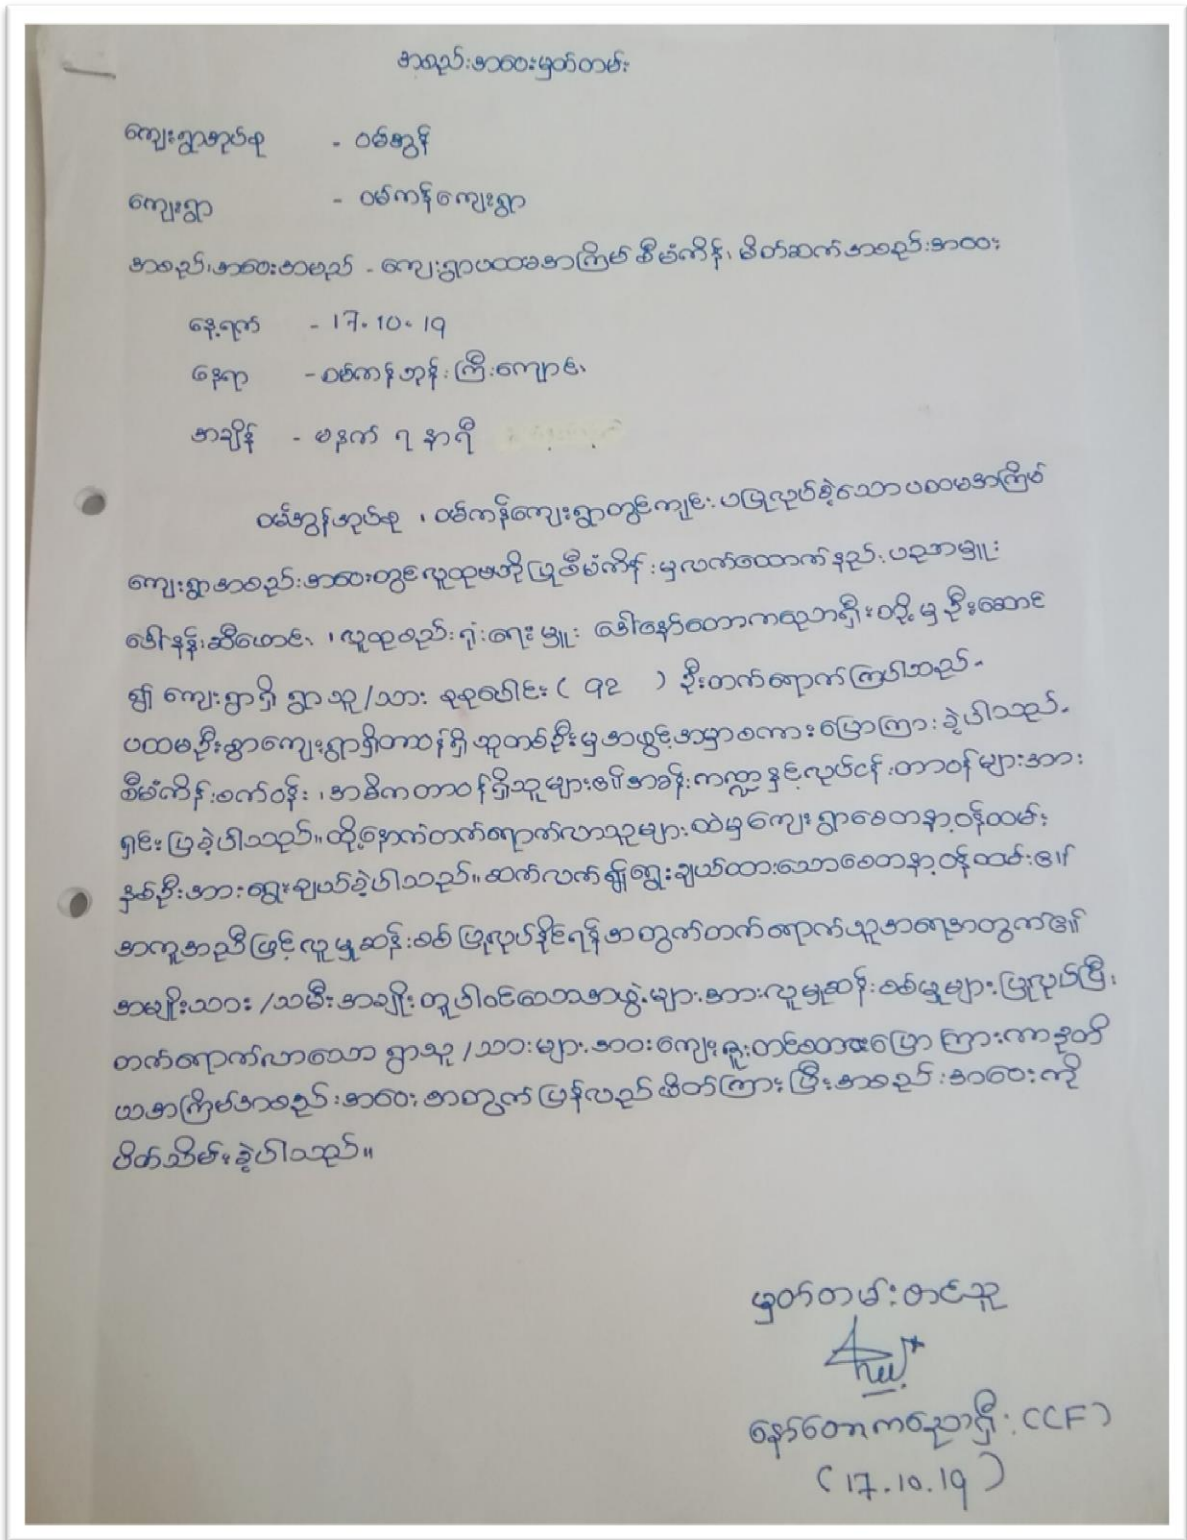 အစည်းအဝေးမှတ်တမ်း
ကျေးရွာအုပ်စု - ဝမ်အွန်
ကျေးရွာ - ဝမ်ကန်ကျေးရွာ
အစည်းအဝေးအမည် - ကျေးရွာပထမအကြိမ် စီမံကိန်း မိတ်ဆက်အစည်းအဝေး
နေ့ရက် - 17.10.19
နေရာ - ဝမ်ကန်ဘုန်းကြီးကျောင်း
အချိန် - မနက် ၇ နာရီ
ဝမ်အွန်အုပ်စု ၊ ဝမ်ကန်ကျေးရွာတွင်ကျင်းပပြုလုပ်ခဲ့သောပထမအကြိမ်
ကျေးရွာအစည်းအဝေးတွင်လူထုဗဟိုပြုစီမံကိန်းမှလက်ထောက်နည်းပညာမှူး
ဒေါ်နန်းဆီဟောင် ၊ လူထုစည်းရုံးရေးမှူး ဒေါ်နော်တောကညောရှီးတို့မှဦးဆောင်
၍ ကျေးရွာရှိ ရွာသူ/သား စုစုပေါင်း ( ၅၁ ) ဦးတက်ရောက်ကြပါသည်။
ပထမဦးစွာကျေးရွာရှိတာဝန်ရှိသူတစ်ဦးမှအဖွင့်အမှာစကားပြောကြားခဲ့ပါသည်။
စီမံကိန်းစက်ဝန်း ၊ အဓိကတာဝန်ရှိသူများ၏အခန်းကဏ္ဍနှင့်လုပ်ငန်းတာဝန်များအား
ရှင်းပြခဲ့ပါသည်။ ထို့နောက်တက်ရောက်လာသူများထဲမှကျေးရွာစေတနာ့ဝန်ထမ်း
နှစ်ဦးအားရွေးချယ်ခဲ့ပါသည်။ ဆက်လက်၍ရွေးချယ်ထားသောစေတနာ့ဝန်ထမ်း၏
အကူအညီဖြင့်လူမှုဆန်းစစ်ပြုလုပ်နိုင်ရန်အတွက်တက်ရောက်သူအရေအတွက်၏
အမျိုးသား/သမီးအချိုးတူပါဝင်သောအဖွဲ့များအားလူမှုဆန်းစစ်မှုများပြုလုပ်ပြီး
တက်ရောက်လာသော ရွာသူ/သားများအားကျေးဇူးတင်စကားပြောကြားကာ ဒုတိ
ယအကြိမ်အစည်းအဝေးအတွက်ပြန်လည်ဖိတ်ကြားပြီးအစည်းအဝေးကို
ပိတ်သိမ်းခဲ့ပါသည်။
မှတ်တမ်းတင်သူ
နော်တောကညောရှီး (CCF)
(17.10.19)